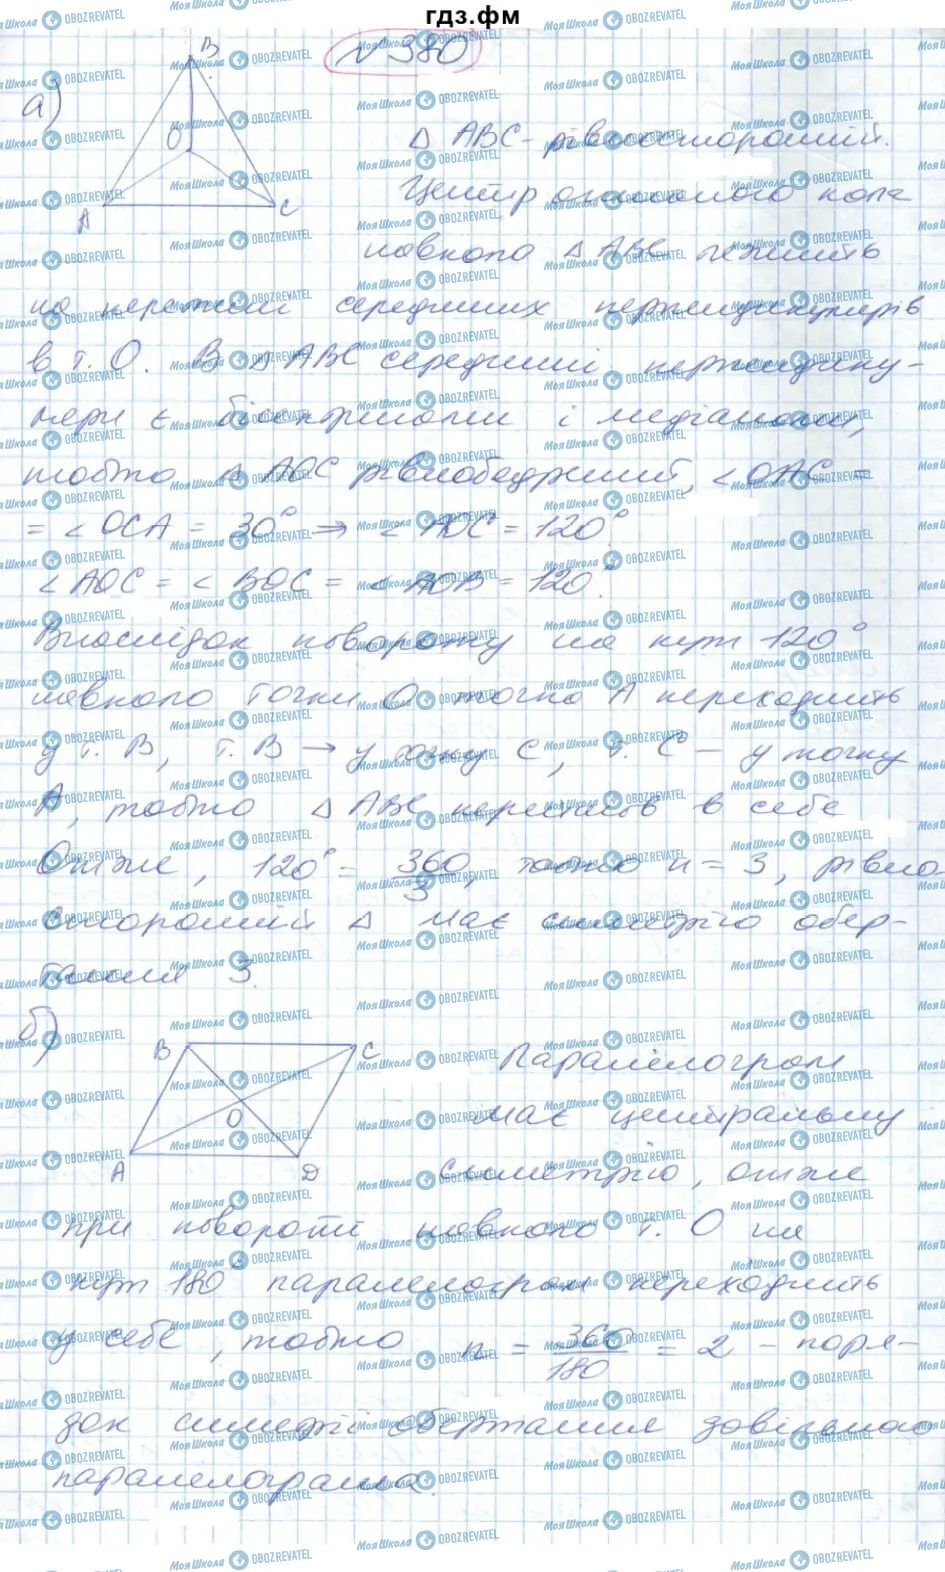 гдз.фм
№380
а)
B
O
A
C
△ ABC - рівносторонній.
Центр описаного кола
навколо △ ABC лежить
на перетині серединних перпендикулярів
в т. O. В △ ABC серединні перпендику-
ляри є бісектрисами і медіанами,
тобто △ AOC рівнобедрений, ∠OAC =
= ∠OCA = 30° ⇒ ∠AOC = 120°.
∠AOC = ∠BOC = ∠AOB = 120°.
Внаслідок повороту на кут 120°
навколо точки O точка A переходить
у т. B, т. B → у точку C, т. C – у точку
A, тобто △ ABC перейшов в себе
Отже, 120° = 360/3, тобто n = 3, рівно-
сторонній △ має симетрію обер-
тання 3.
б)
B
C
O
A
D
Паралелограм
має центральну
симетрію, отже
при повороті навколо т. O на
кут 180° паралелограм переходить
у себе, тобто n = 360/180 = 2 – поря-
док симетрії обертання довільного
паралелограма.
МояШкола OBOZREVATEL